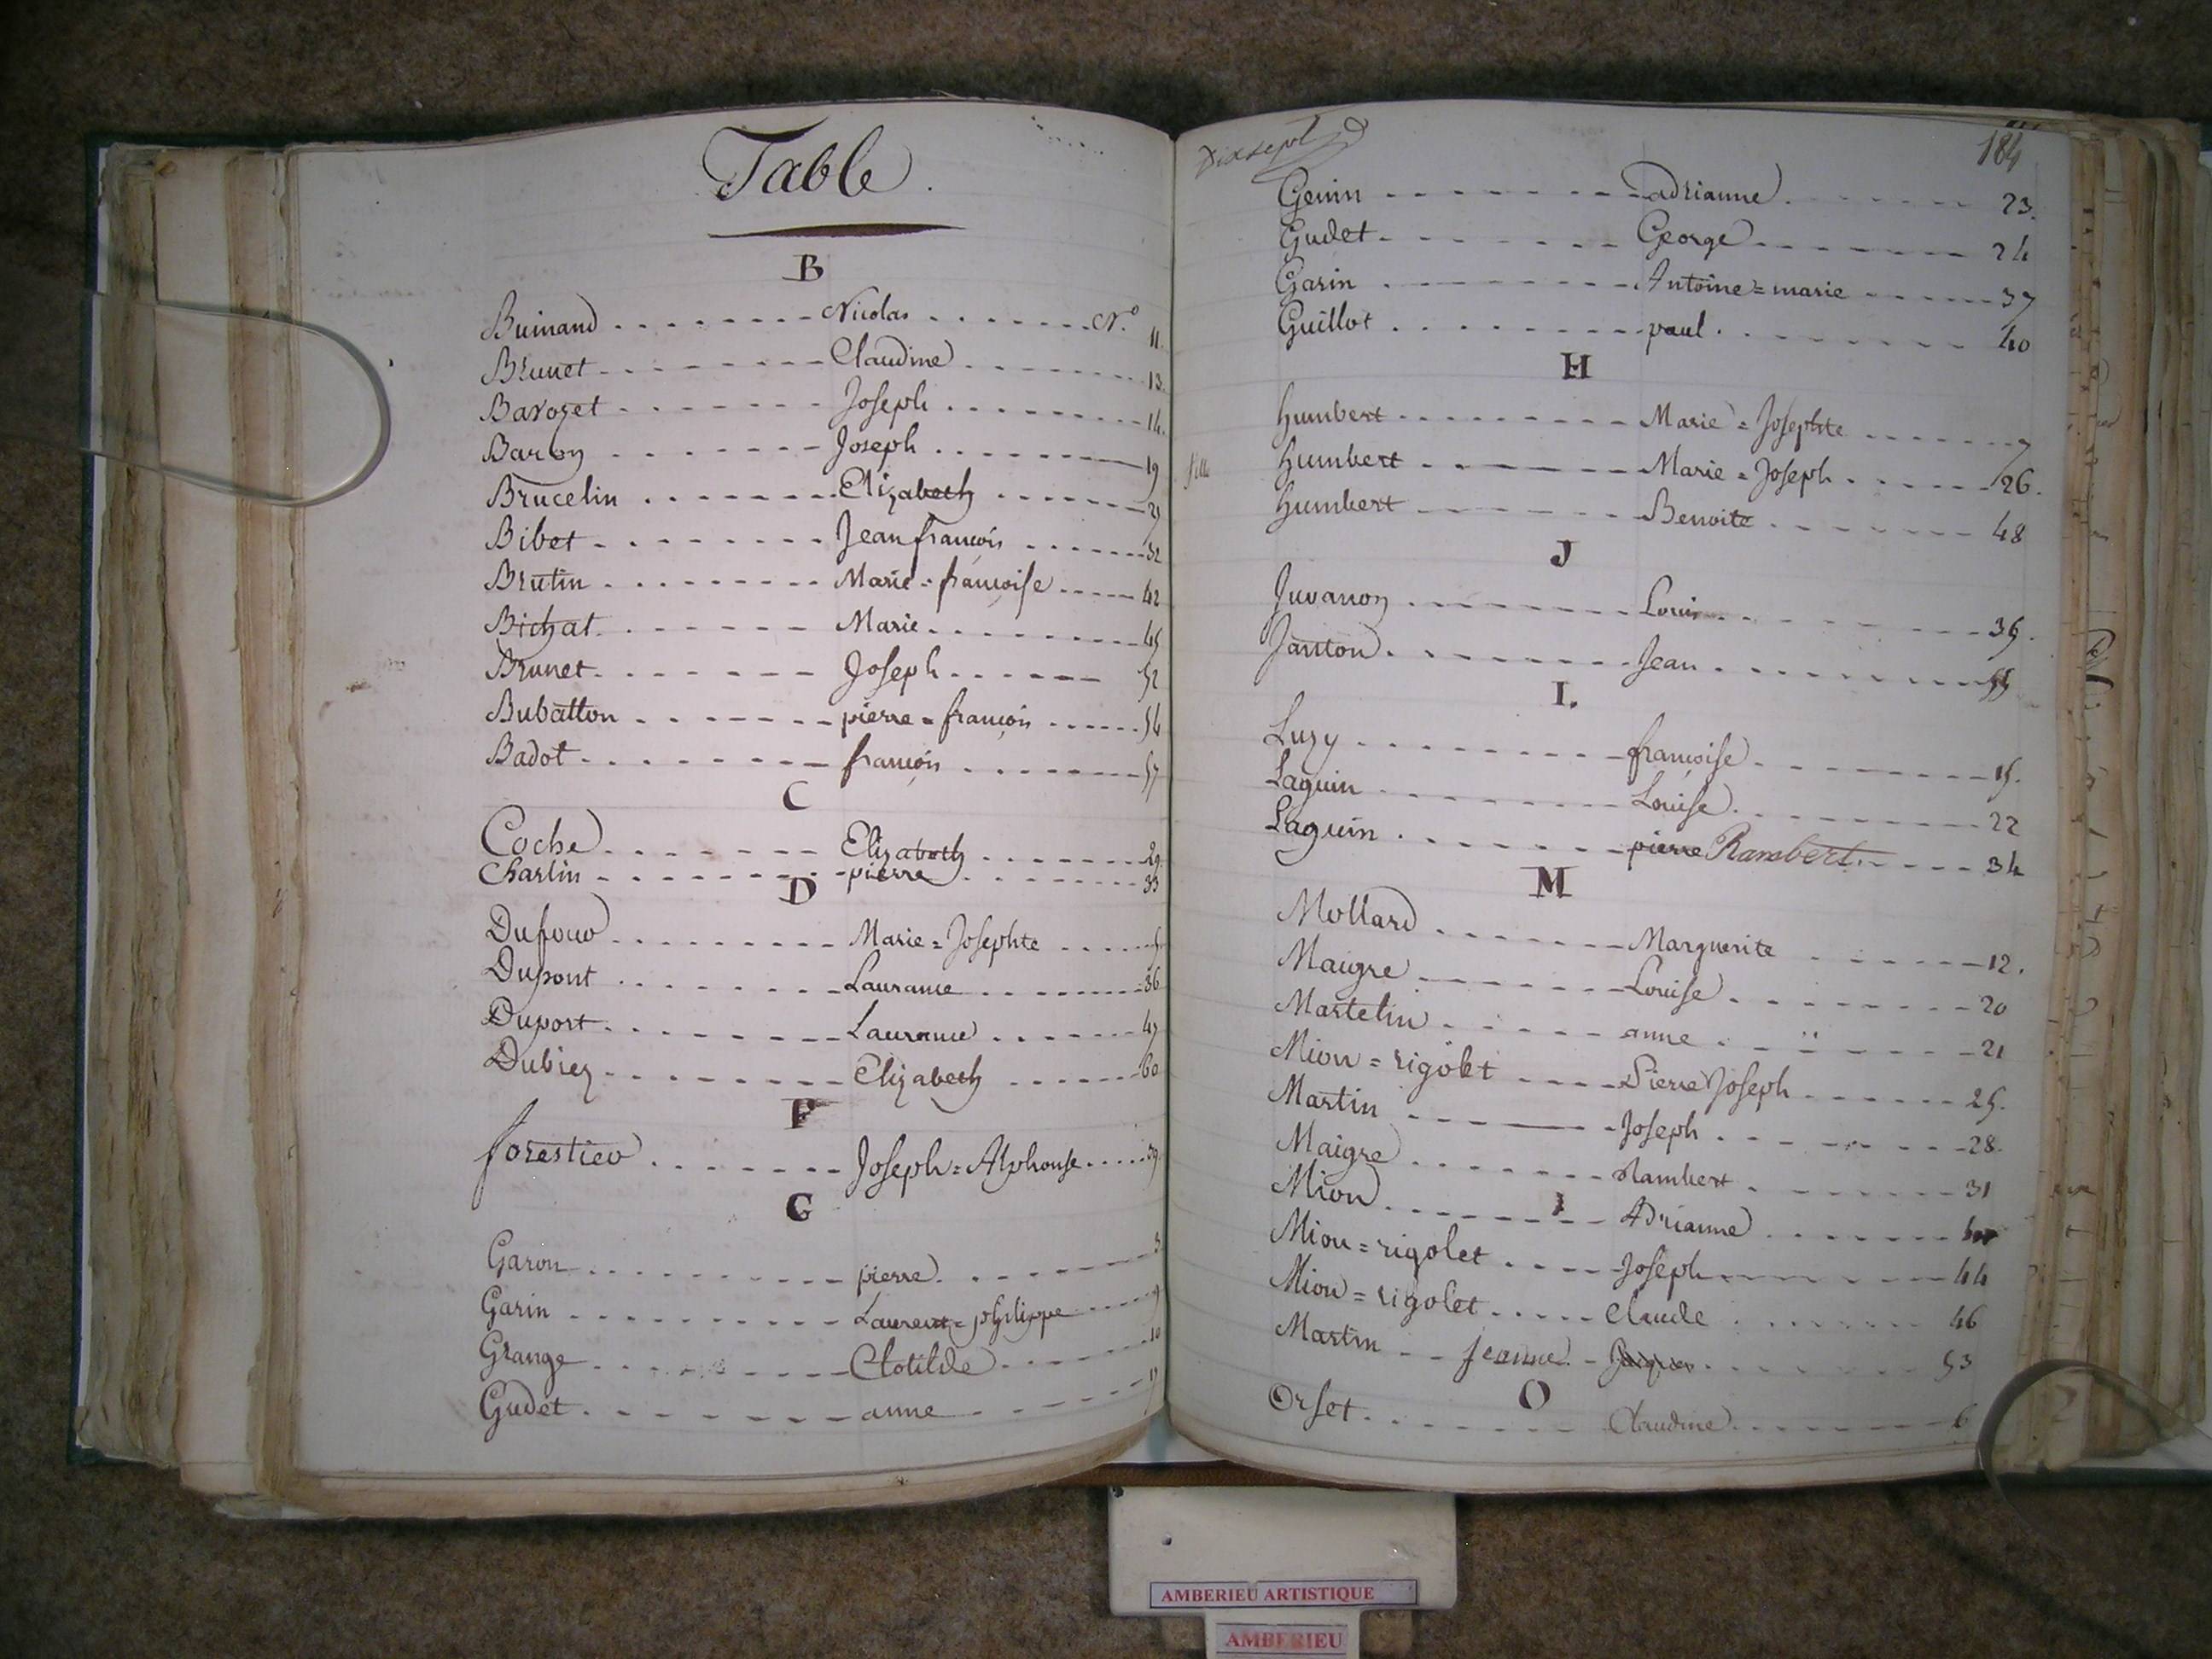 Table.
B
Buinand ........ Nicolas ....... N.° 11
Brunet ........ Claudine ....... 13.
Barozet ....... Joseph ........ 14.
Baron ....... Joseph ........ 19
Brucelin ....... Elizabeth ......
Bibet ........ Jean françois ...... 32
Brutin ........ Marie = françoise ..... 42
Bichat ....... Marie ........ 45
Brunet ....... Joseph ...... 52
Bubatton ...... pierre = françois ..... 54
Badot ........ françois ....... 57
C
Coche ....... Elizabeth ....... 29.
Charlin ........ pierre ....... 33
D
Dufour ........ Marie = Josephte ..... 5
Dupont ........ Laurance ....... 36
Duport ........ Laurance ...... 47
Dubiez ........ Elizabeth ...... 60
F
forestier ....... Joseph = Alphonse .... 59.
G
Garon .......... pierre ...... 3
Garin .......... Laurent = philippe .... 9
Grange ........ Clotilde ..... 10
Gudet ........ anne ...... 17
Dixsept
184
Genin ........ adrianne ....... 23.
Gudet ....... George ....... 24
Garin ........ Antoine = marie ...... 37
Guillot ......... paul ........ 40
H
humbert ......... Marie = Josephte ....... 7
fille humbert ....... Marie = Joseph ...... 26.
humbert ....... Benoite ....... 48
J
Juvanon ......... Louis ........ 35.
Janton ........ Jean ......... 55
L.
Luzy ......... françoise ........ 15.
Laguin ........ Louise ........ 22
Laguin ....... pierre Rambert ..... 34
M
Mollard ....... Marguerite ...... 12.
Maigre ....... Louise ........ 20
Martelin ...... anne ....... 21
Mion = rigolet .... Pierre Joseph ...... 25.
Martin ...... Joseph ........ 28.
Maigre ........ Rambert ....... 31
Mion ........ Adrianne .......
Mion = rigolet .... Joseph ........ 44
Mion = rigolet ..... Claude ....... 46
Martin .. jeanne - Jaques ....... 53
O
Orset ........ Claudine ....... 6
AMBERIEU ARTISTIQUE
AMBERIEU